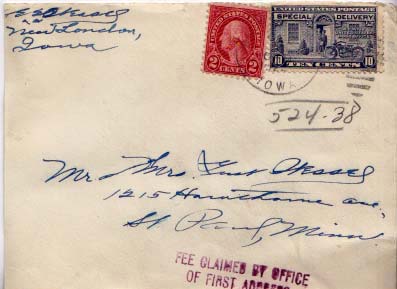 New London,
Iowa
UNITED STATES POSTAGE
2 CENTS 2
UNITED STATES POSTAGE
SPECIAL DELIVERY
10 TEN CENTS 10
IOWA
524-38
Mr Mrs. Gust
1215 Hawthorne Ave,
St Paul, Minn
FEE CLAIMED BY OFFICE
OF FIRST ADDRESS